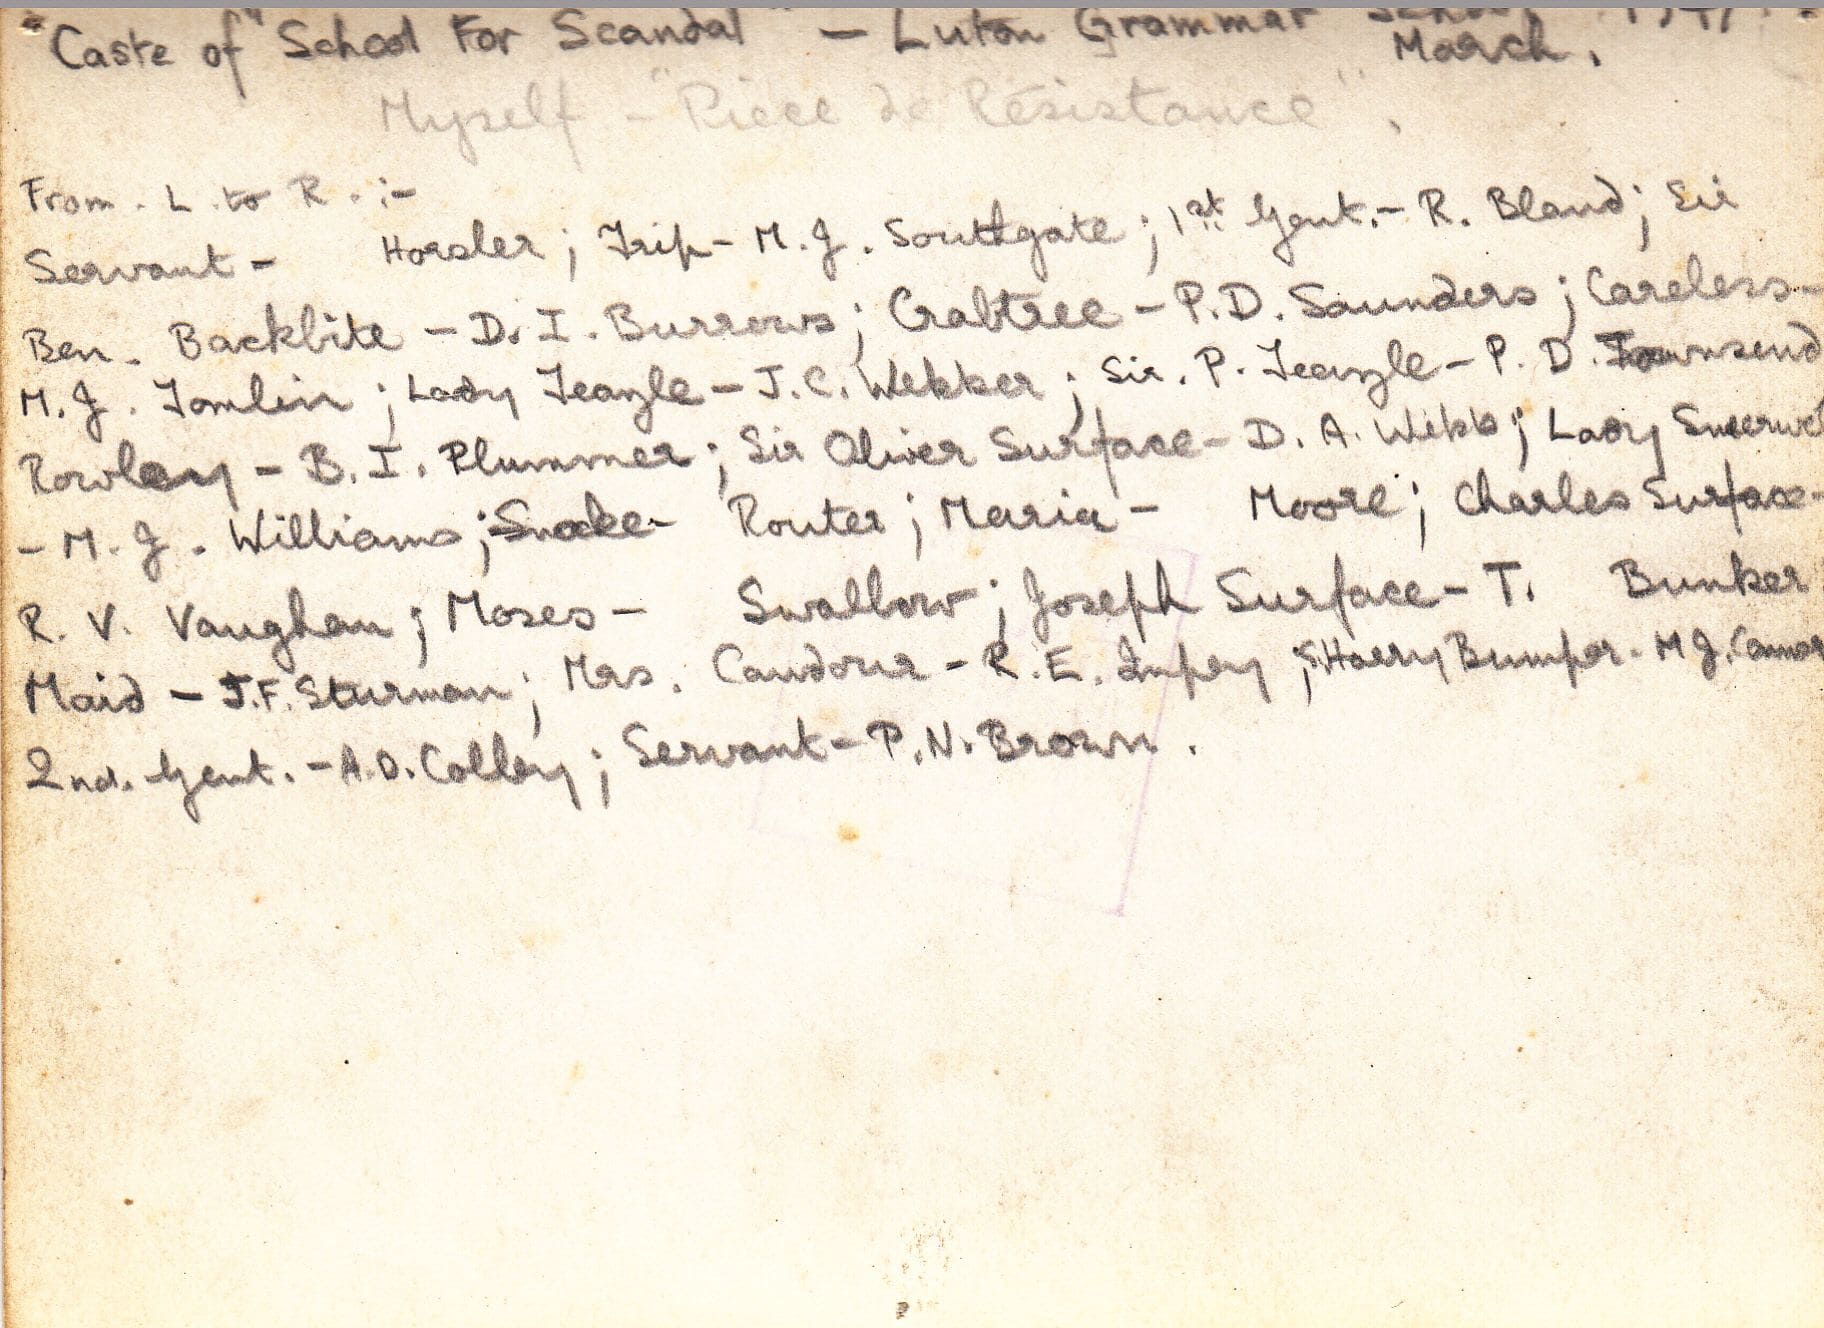 "Caste of "School For Scandal" - Luton Grammar School
March.
Myself - "Piece de Résistance".
From. L. to R. :-
Servant - Horsler; Trip - M.J. Southgate; 1st Gent. - R. Bland; Sir
Ben. Backbite - D. I. Burrows; Crabtree - P.D. Saunders; Careless -
M. J. Tomlin; Lady Teazle - J.C. Webber; Sir. P. Teazle - P. D. Townsend
Rowley - B. I. Plummer; Sir Oliver Surface - D. A. Webb; Lady
- M. J. Williams; Snake - Router; Maria - Moore; Charles Surface -
R. V. Vaughan; Moses - Swallow; Joseph Surface - T. Bunker
Maid - J.F. Sturman; Mrs. Candour - R. E. Impey; S. Harry Bumper - M.J.
2nd. Gent. - A.D. Colley; Servant - P.N. Brown.